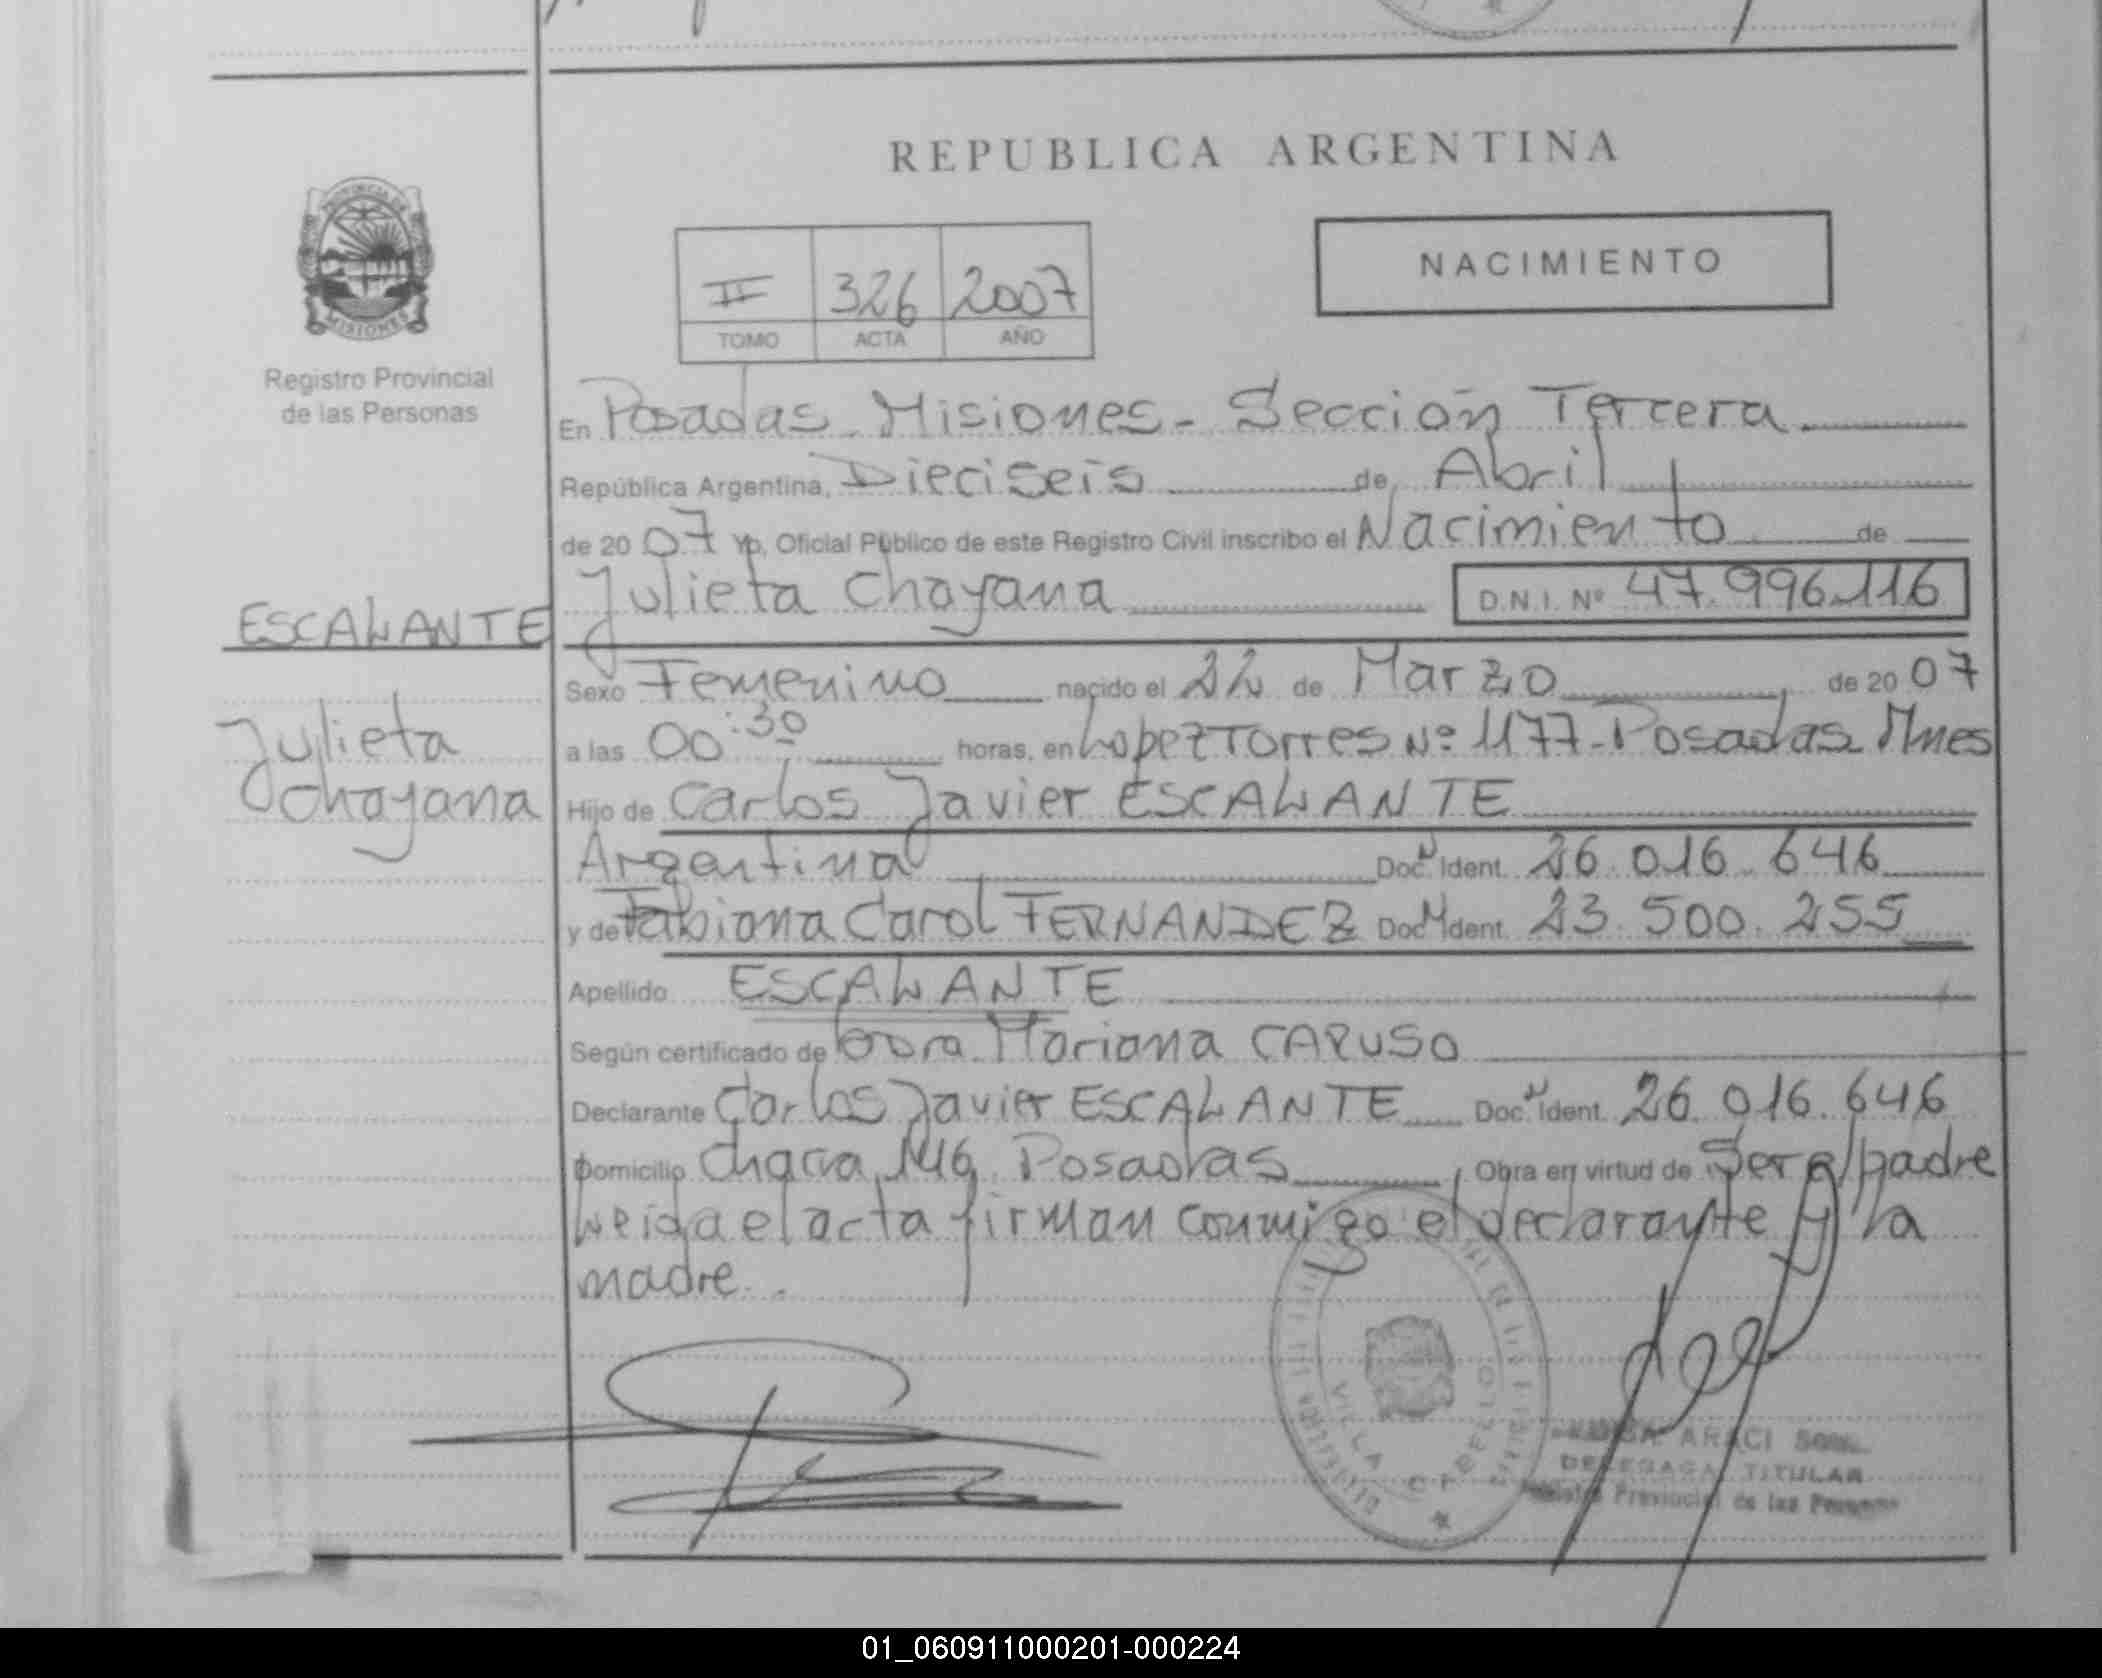 REPUBLICA ARGENTINA
PROVINCIA DE
MISIONES
Registro Provincial
de las Personas
II 326 2007
TOMO ACTA AÑO
NACIMIENTO
En Posadas. Misiones - Sección Tercera
República Argentina, Dieciseis de Abril
de 20 07 yo, Oficial Público de este Registro Civil inscribo el Nacimiento de
Julieta Chayana D.N.I. Nº 47.996.116
ESCALANTE
Julieta
Chayana
Sexo Femenino nacido el 22 de Marzo de 20 07
a las 00:30 horas, en Lopez Torres Nº 1177 - Posadas Mnes
Hijo de Carlos Javier ESCALANTE
Argentina Doc. N Ident. 26.016.646
y de Fabiana Carol FERNANDEZ Doc. N Ident. 23.500.255
Apellido ESCALANTE
Según certificado de Mariana CARUSO
Declarante Carlos Javier ESCALANTE Doc. N Ident. 26.016.646
Domicilio Chacra 146 Posadas, Obra en virtud de Ser el padre
Leida el acta firman conmigo el declarante y la
madre.
VILLA CABELLO
ARACI
DELEGADA TITULAR
Provincial de las Personas
01_060911000201-000224